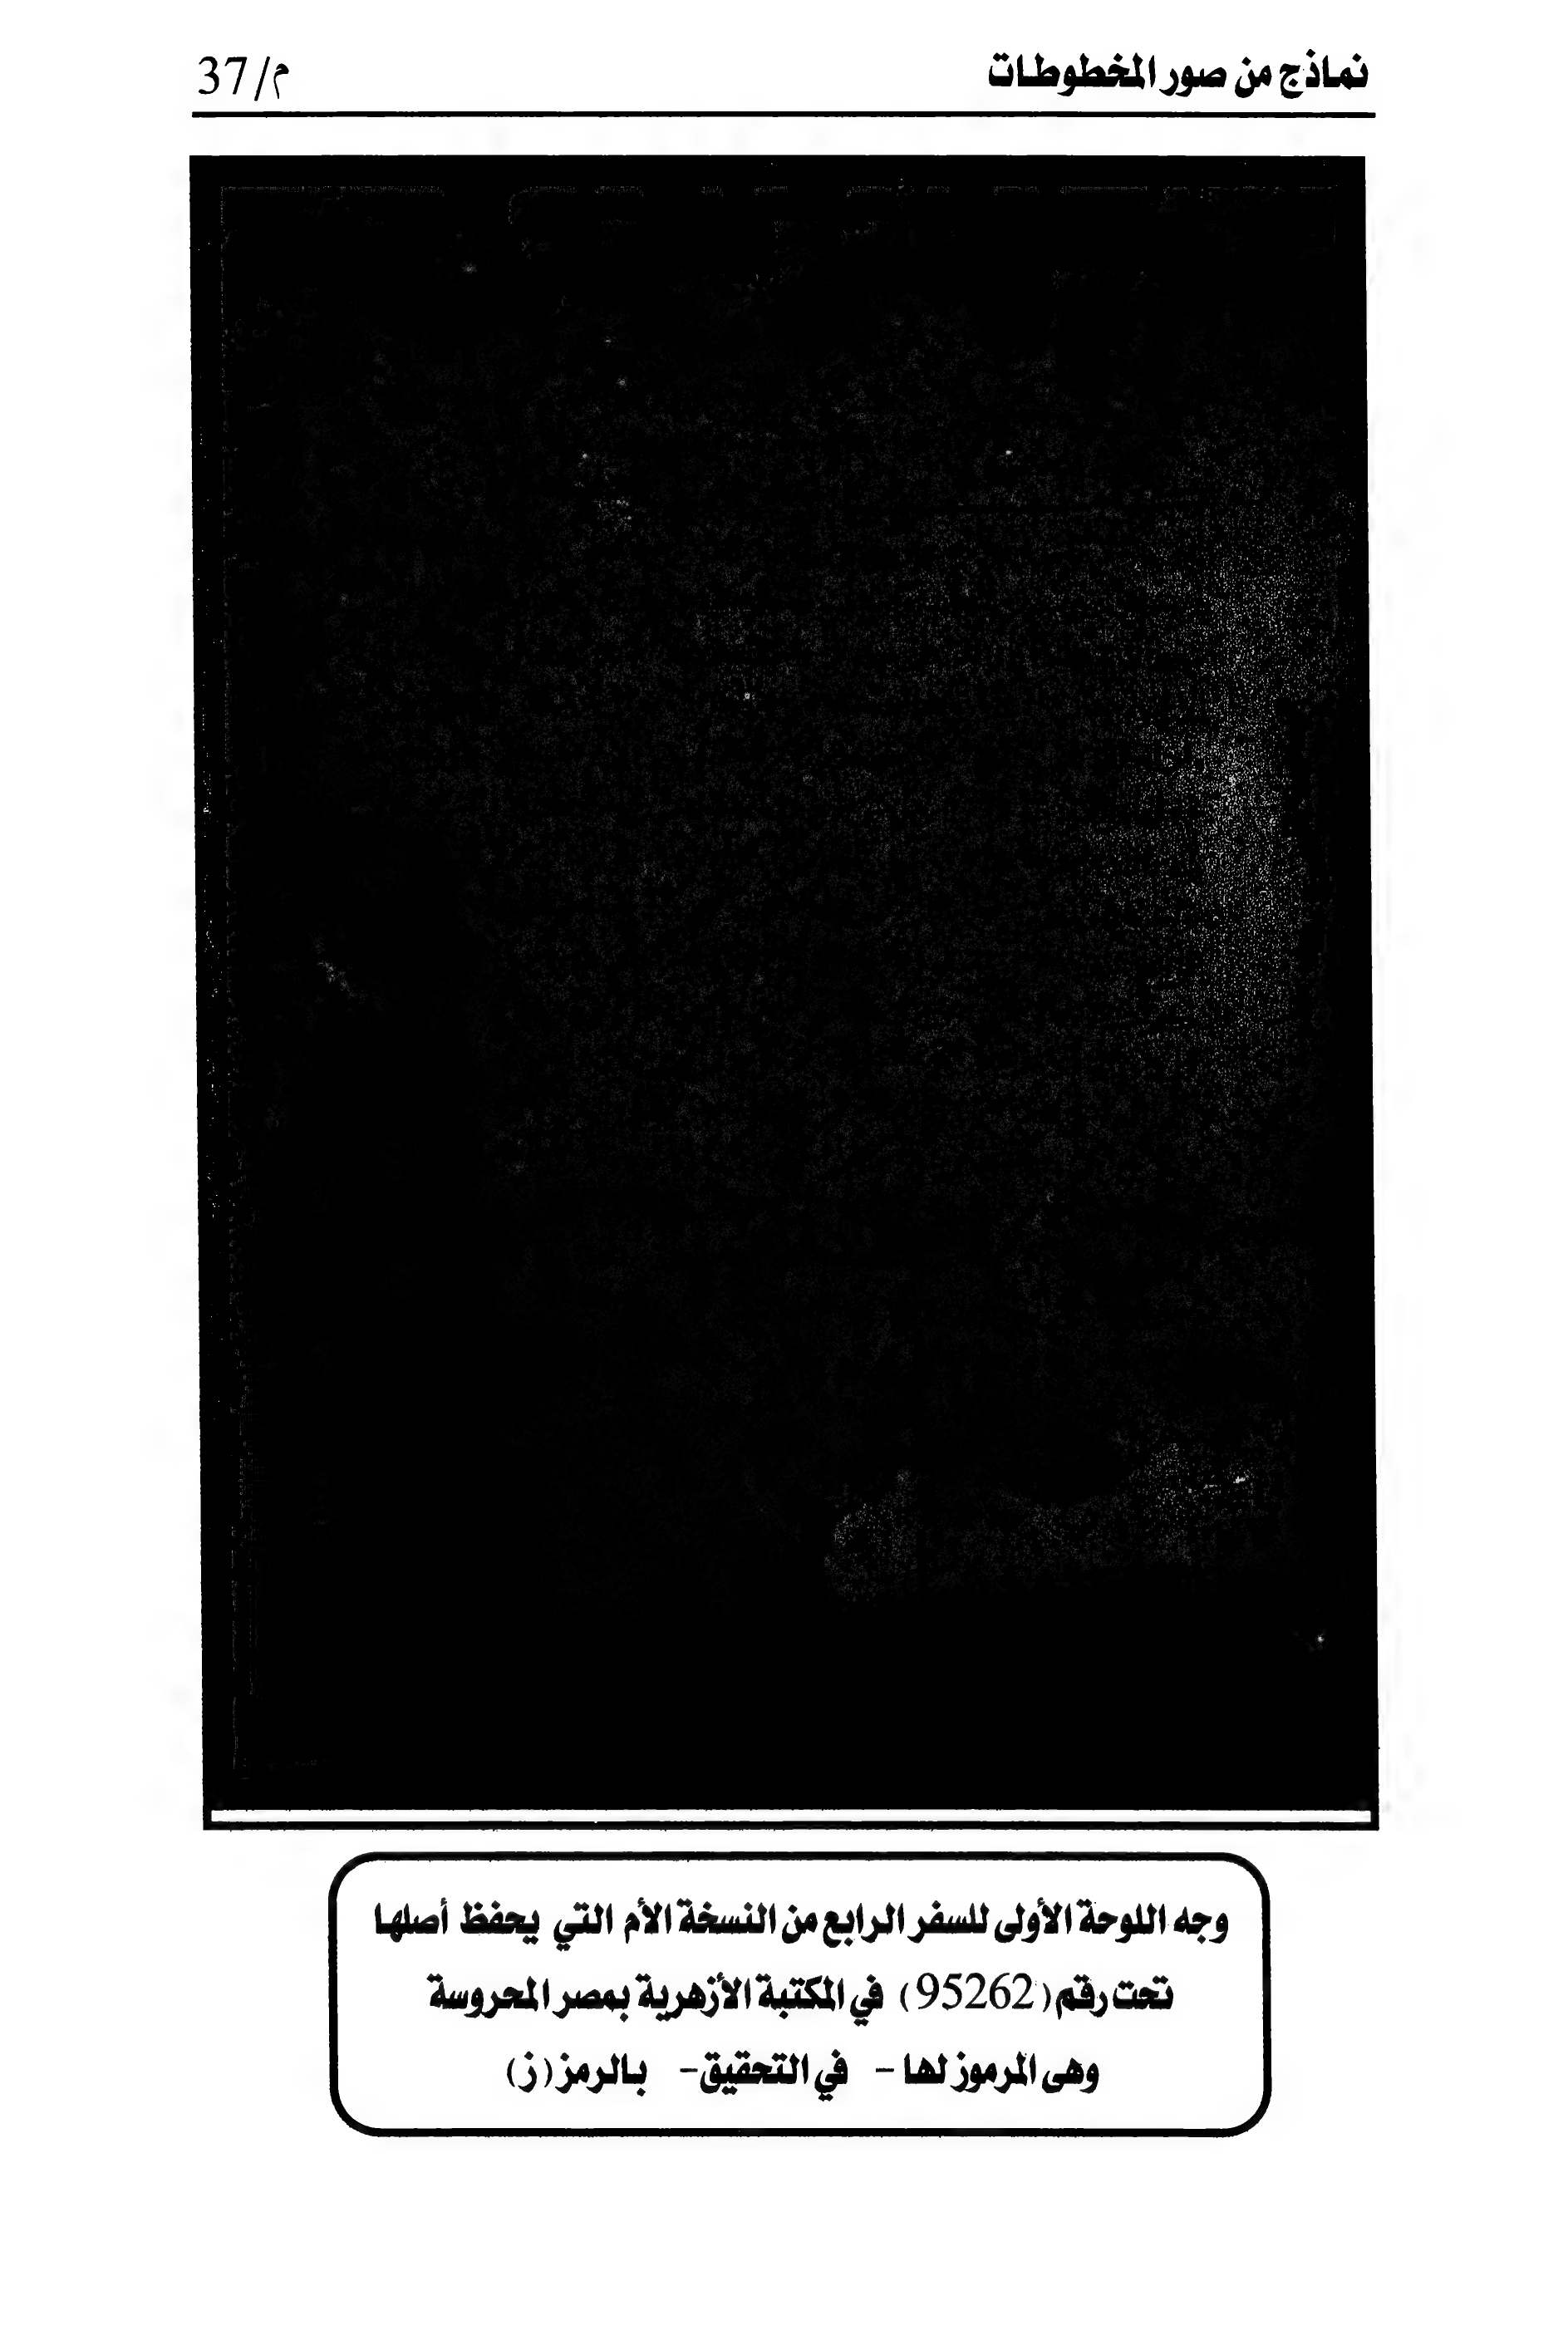 نماذج من صور المخطوطات
م/37
وجه اللوحة الأولى للسفر الرابع من النسخة الأم التي يحفظ أصلها
تحت رقم (95262) في المكتبة الأزهرية بمصر المحروسة
وهى المرموز لها - في التحقيق - بالرمز (ز)